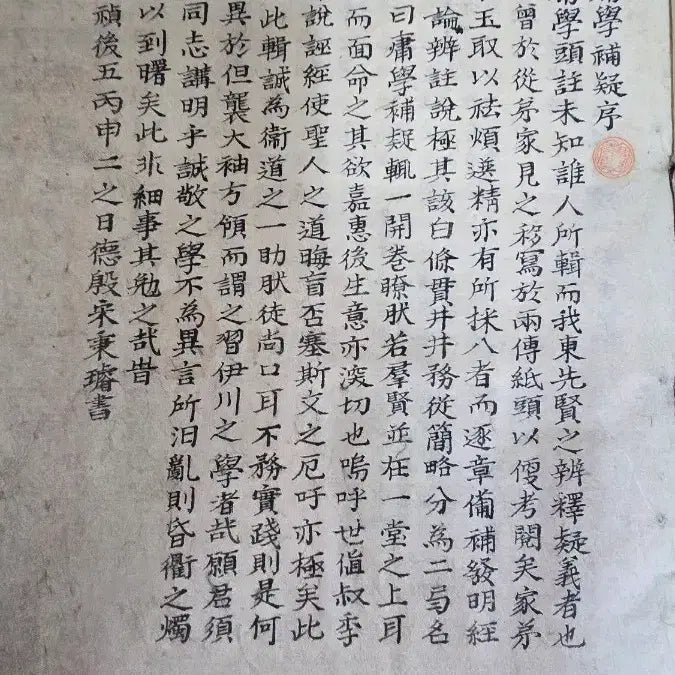 學補疑序
學頭註未知誰人所輯而我東先賢之辨釋疑義者也
曾於從茅家見之移寫於兩傳紙頭以便考閱矣家茅
玉取以祛煩選精亦有所採入者而逐章備補發明經
論辨註說極其該白條貫井井務從簡略分為二局名
曰庸學補疑輒一開卷瞭然若羣賢並在一堂之上耳
而面命之其欲嘉惠後生意亦深切也嗚呼世傎叔季
說誣經使聖人之道晦盲否塞斯文之厄吁亦極矣此
此輯誠為衛道之一助然徒尚口耳不務實踐則是何
異於但襲大袖方領而謂之習伊川之學者哉願君須
同志講明乎誠敬之學不為異言所汩亂則昏衢之燭
以到曙矣此非細事其勉之哉旹
禎後五丙申二之日德殷宋秉璿書